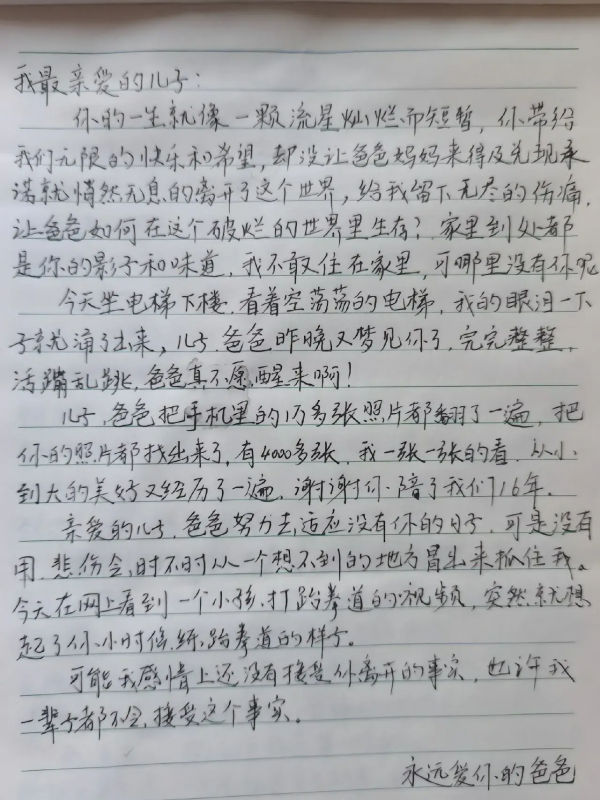 我最亲爱的儿子：
你的一生就像一颗流星灿烂而短暂，你带给
我们无限的快乐和希望，却没让爸爸妈妈来得及兑现承
诺就悄然无息的离开了这个世界，给我留下无尽的伤痛，
让爸爸如何在这个破烂的世界里生存？家里到处都
是你的影子和味道，我不敢住在家里，可哪里没有你呢
今天坐电梯下楼，看着空荡荡的电梯，我的眼泪一下
子就涌了出来，儿子，爸爸昨晚又梦见你了，完完整整，
活蹦乱跳，爸爸真不愿醒来啊！
儿子，爸爸把手机里的1万多张照片都翻了一遍，把
你的照片都找出来了，有4000多张，我一张一张的看，从小
到大的美好又经历了一遍，谢谢你陪了我们16年。
亲爱的儿子，爸爸努力去适应没有你的日子，可是没有
用，悲伤会时不时从一个想不到的地方冒出来抓住我。
今天在网上看到一个小孩打跆拳道的视频，突然就想
起了你小时候练跆拳道的样子。
可能我感情上还没有接受你离开的事实，也许我
一辈子都不会接受这个事实。
永远爱你的爸爸